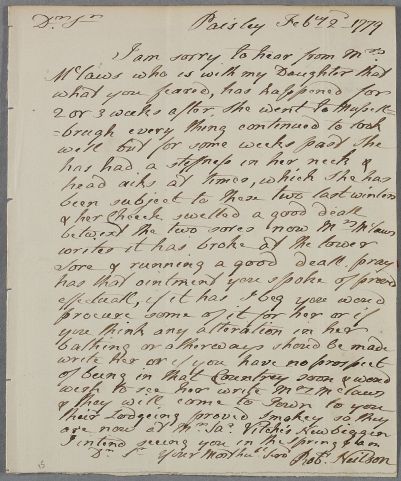 Dr Sr Paisley Feby 2d 1779
I am sorry to hear from Mrs
McLaws who is with my Daughter that
what you feared, has happened for
2 or 3 weeks after she went to Mussel-
=brugh every thing continued to look
well but for some weeks past she
has had a stiffness in her neck &
head aiks at times, which she has
been subject to these two last winters
& her Cheek swelled a good deall
betwixt the two sores now Mrs McLaws
writes it has broke at the lower
sore & running a good deall. pray
has that ointment you spoke of proved
effectual, if it has I beg you would
procure some of it for her or if
you think any alteration in her
bathing or otherways should be made
write her or if you have no prospect
of being in that Country soon & would
wish to see her write Mrs McLaws
& they will come to Town to you
their Lodgeing proved smokey so they
are now at Mrs Newbiggin
I intend seeing you in the spring & am
Dr Sr Your most hue Serv Robt Neilson